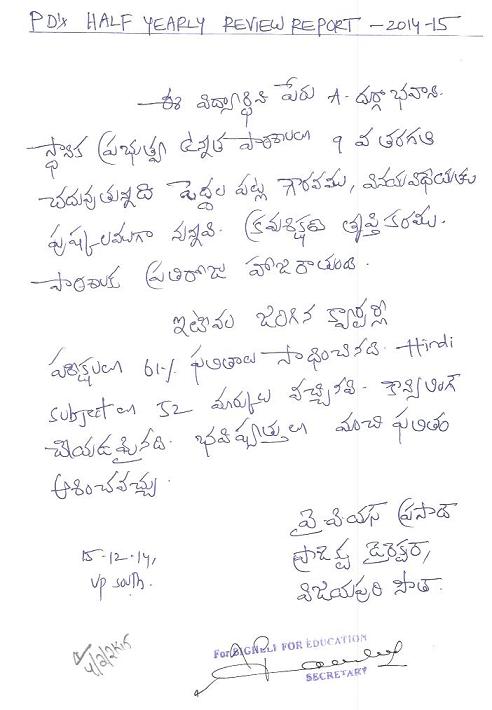 PD's HALF YEARLY REVIEW REPORT - 2014-15
ఈ విద్యార్థిని పేరు A. దుర్గా భవాని.
స్థానిక ప్రభుత్వ ఉన్నత పాఠశాలలు 9 వ తరగతి
చదువుతున్నది పెద్దల పట్ల గౌరవము, వినయవిధేయతలు
పుష్కలముగా నున్నవి. క్రమశిక్షణ తృప్తికరము.
పాఠశాలకు ప్రతిరోజు హాజరౌతుంది.
ఇటీవల జరిగిన క్వార్టర్లీ
పరీక్షలలు 61% ఫలితాలు సాధించినది. Hindi
subjectలు 52 మార్కులు వచ్చినవి. కౌన్సిలింగ్
చేయడమైనది. భవిష్యత్తులు మంచి ఫలితం
ఆశించవచ్చు.
వై చియస్ ప్రసాద్
ప్రాజెక్టు డైరెక్టర్,
విజయపురి సౌత్.
15-12-14,
VP South.
4/2/2K15
For SIGNELI FOR EDUCATION
SECRETARY